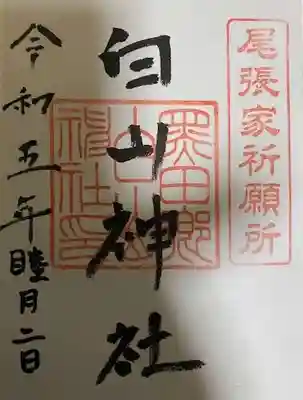 尾張家祈願所
白山神社
黒田郷
神社印
令和五年睦月二日